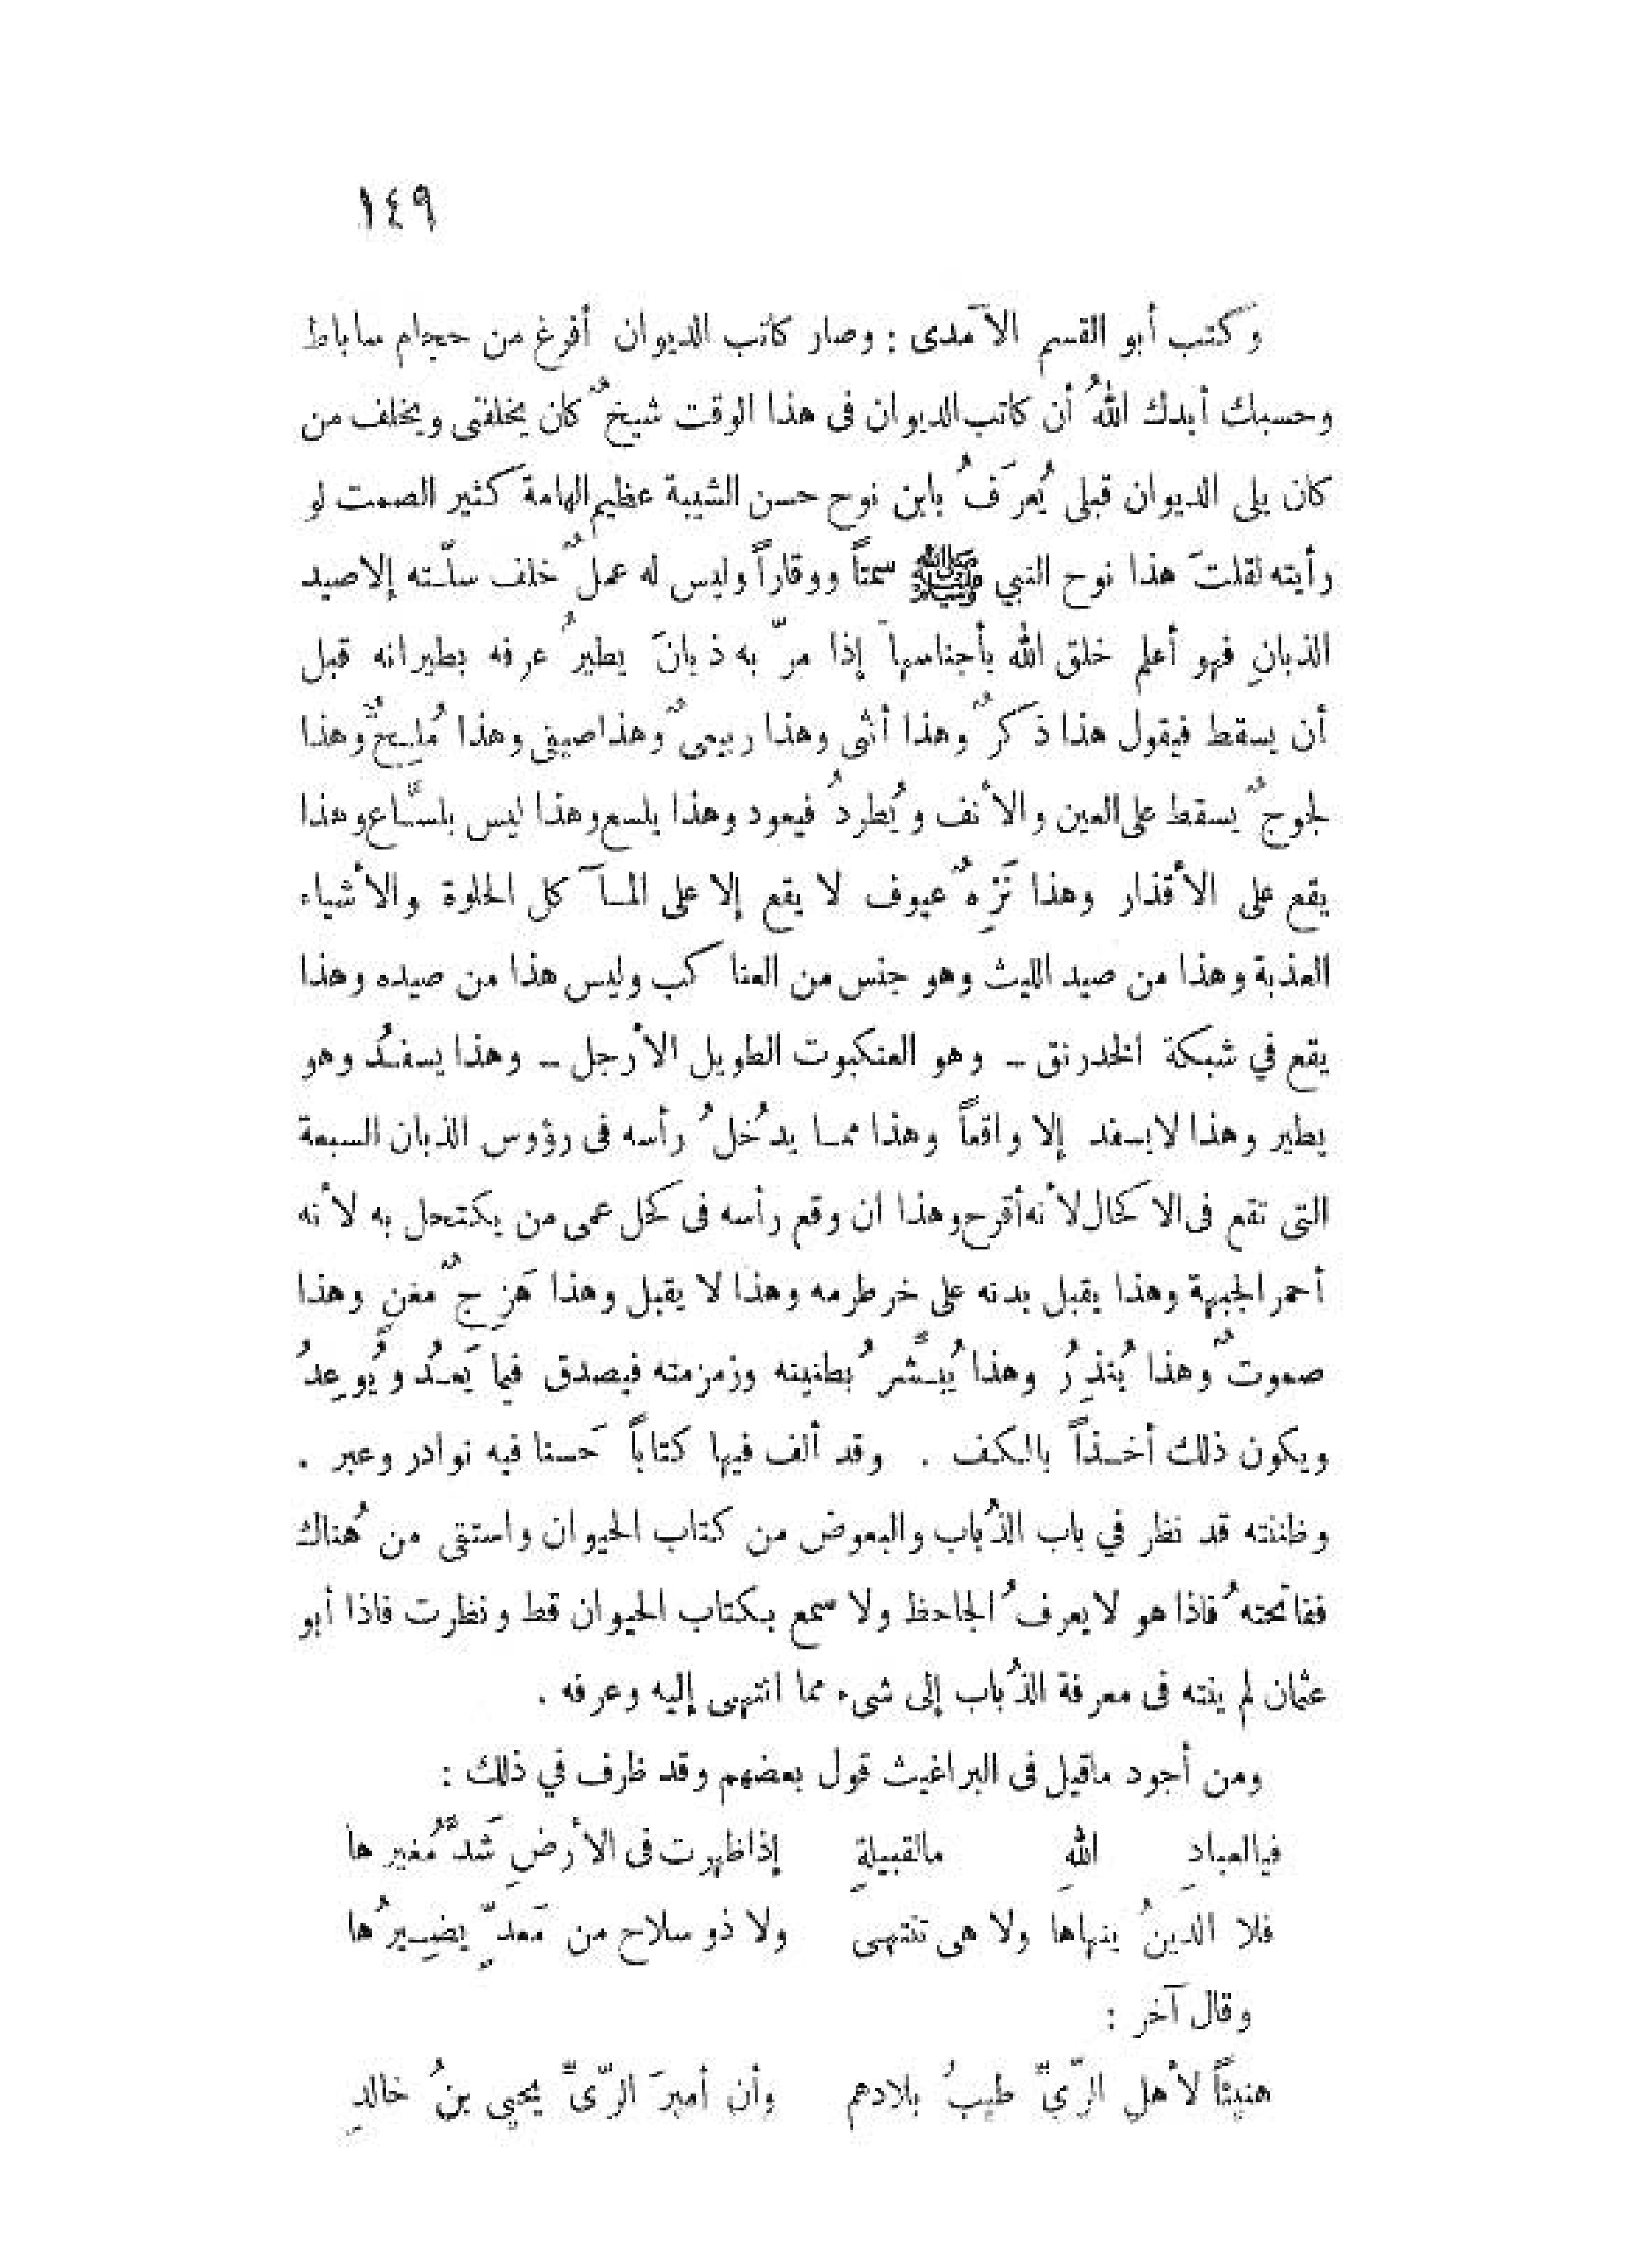 ١٤٩
وكتب أبو القسم الآمدى : وصار كاتب الديوان أفرغ من حجام ساباط
وحسبك أيدك اللهُ أن كاتب الديوان فى هذا الوقت شيخٌ كان يخلفنى ويخلف من
كان يلى الديوان قبلى يُعرَفُ بابن نوح حسن الشيبة عظيم الهامة كثير الصمت لو
رأيته لقلتَ هذا نوح النبي ﷺ سمتاً ووقاراً وليس له عملٌ خلف سلّته إلا صيد
الذبانِ فهو أعلم خلق الله بأجناسها إذا مرّ به ذبانَ يطيرُ عرفه بطيرانه قبل
أن يسقط فيقول هذا ذكرٌ وهذا أنثى وهذا ربيعىٌ وهذا صيفى وهذا مُلِحٌّ وهذا
لجوجٌ يسقط على العين والأنف ويُطردُ فيعود وهذا يلسع وهذا ليس بلسَّاع وهذا
يقع على الأقذار وهذا نَزِهٌ عيوف لا يقع إلا على المآكل الحلوة والأشياء
العذبة وهذا من صيد الليث وهو جنس من العناكب وليس هذا من صيده وهذا
يقع في شبكة الخدرنق ـ وهو العنكبوت الطويل الأرجل ـ وهذا يسفدُ وهو
يطير وهذا لا يسفد إلا واقعاً وهذا مما يدُخلُ رأسه فى رؤوس الذبان السبعة
التى تقع فى الاكحال لأنه أقرح وهذا ان وقع رأسه فى كحل عمى من يكتحل به لأنه
أحمر الجبهة وهذا يقبل بدنه على خرطومه وهذا لا يقبل وهذا هَزِجٌ مغنٍ وهذا
صموتٌ وهذا يُنذِرُ وهذا يُبشَّرُ بطنينه وزمزمته فيصدق فيما يَعُد ويُوعِدُ
ويكون ذلك أخذاً بالكف . وقد ألف فيها كتاباً حَسنا فيه نوادر وعبر .
وظننته قد نظر في باب الذُباب والبعوض من كتاب الحيوان واستقى من هُناك
ففاتحتهُ فاذا هو لا يعرفُ الجاحظ ولا سمع بكتاب الحيوان قط ونظرت فاذا أبو
عثمان لم ينته فى معرفة الذُباب إلى شىء مما انتهى إليه وعرفه .
ومن أجود ماقيل فى البراغيث قول بعضهم وقد ظرف في ذلك :
فيالعبادِ اللهِ مالقبيلةٍ إذا ظهرت فى الأرضِ شَدَّ مُغيرها
فلا الدينُ ينهاها ولا هى تنتهى ولا ذو سلاح من مَعدٍّ يضيرُها
وقال آخر :
هنيئاً لأهلِ الرّيِّ طيبُ بلادهم وأن أميرَ الرّىِّ يحيى بنُ خالدِ